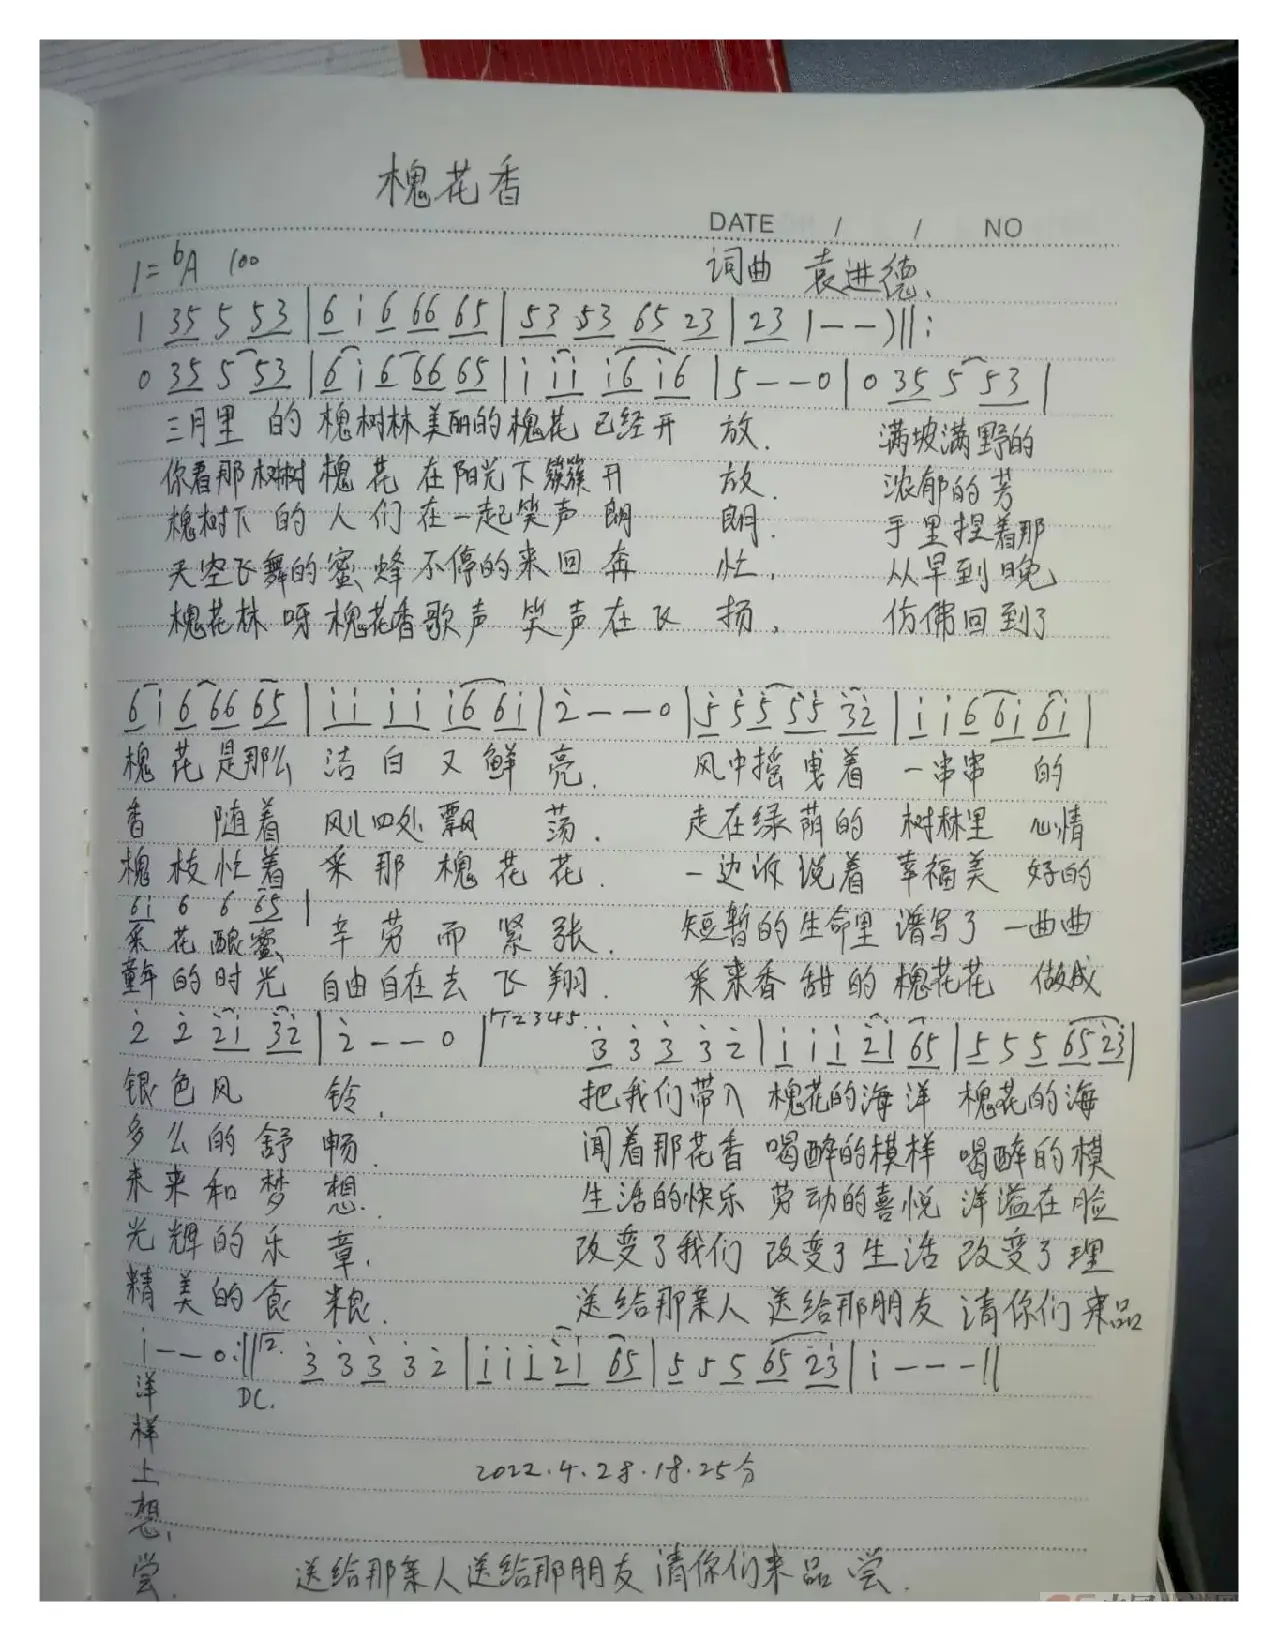 槐花香
DATE / / NO
1=ᵇA 100 词曲 袁进德.
1 35 5 53 | 6 i 6 66 65 | 53 53 65 23 | 23 1 - - ) ‖:
0 35 5 53 | 6 i 6 66 65 | i i i i6 i6 | 5 - - 0 | 0 35 5 53 |
三月里 的 槐树林美丽的槐花 已经开 放. 满坡满野的
你看那树树 槐 花 在阳光下簇簇开 放. 浓郁的芳
槐树下 的 人 们 在一起笑声 朗 朗. 手里捏着那
天空飞舞的蜜 蜂 不停的来回 奔 忙. 从早到晚
槐花林 呀 槐花香歌声 笑声在飞 扬. 仿佛回到了
6 i 6 66 65 | i i i i i6 6i | 2̇ - - 0 | 5 5 5 55 3̇2̇ | i i 6 6i 6i |
槐 花 是那么 洁 白 又 鲜 亮. 风中摇 曳着 一串串 的
香 随着 风儿四处 飘 荡. 走在绿荫的 树林里 心情
槐 枝 忙着 采 那 槐 花 花. 一边诉说着 幸福美 好的
6i 6 6 65 |
采 花 酿蜜 辛 劳 而 紧 张. 短暂的生命里 谱写了 一曲曲
童年 的 时 光 自由自在去 飞 翔. 采来香 甜 的 槐花花 做成
2̇ 2̇ 2̇i 3̇2̇ | 2̇ - - 0 | 1 2 3 4 5. 3̇ 3̇ 3̇ 3̇ 2̇ | i i i 2̇i 65 | 5 5 5 65 2̇3̇ |
银 色 风 铃. 把我们带入 槐花的海 洋 槐花的海
多 么 的 舒 畅. 闻着那花香 喝醉的模样 喝醉的模
未 来 和 梦 想. 生活的快乐 劳动的喜悦 洋溢在脸
光 辉 的 乐 章. 改变了我们 改变了生活 改变了理
精 美 的 食 粮. 送给那亲人 送给那朋友 请你们 来品
i - - 0 :‖ 3̇ 3̇ 3̇ 3̇ 2̇ | i i i 2̇i 65 | 5 5 5 65 2̇3̇ | i - - - ‖
DC.
洋
样
上
想.
尝.
2022.4.28.18.25分
送给那亲人送给那朋友 请你们来品 尝.